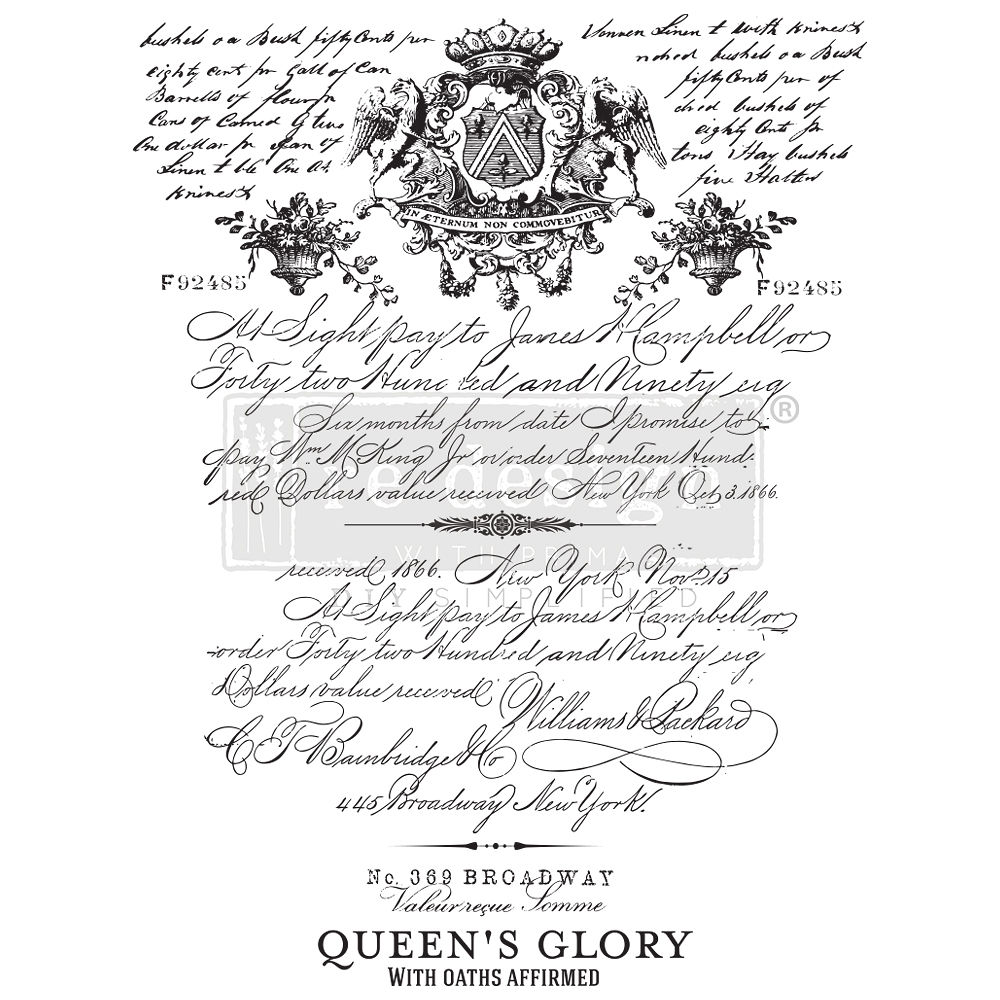 bushels oa Bush fifty Cents per
eighty cent pr Gall of Can
Barrells of flour
Cans of Camed
One dollar pr
Linen t ble One At
knives t
Linen t with knives t
bushels oa Bush
fifty Cents per of
bushels of
eighty Cents pr
tons Hay bushels
five
IN ÆTERNUM NON COMMOVEBITUR
F92485
F92485
At Sight pay to James H Campbell or
Forty two Hundred and Ninety eig
Six months from date I promise to
pay Wm. M King Jr or order Seventeen Hund.
red Dollars value received New York Oct. 3. 1866.
re·design
WITH PRIMA
®
DIY SIMPLIFIED
received 1866. New York Nov. 15
At Sight pay to James H Campbell or
order Forty two Hundred and Ninety eig
Dollars value received
Williams & Packard
C T Bainbridge & Co
445 Broadway New York.
No. 369 BROADWAY
Valeur reçue Somme
QUEEN'S GLORY
WITH OATHS AFFIRMED